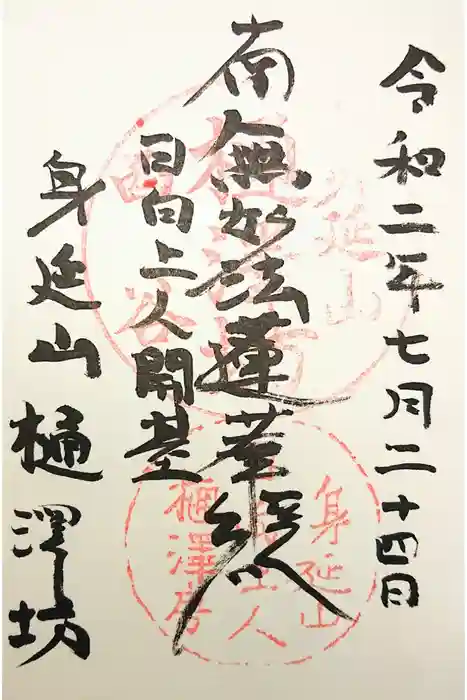 令和二年七月二十四日
南無妙法蓮華経
日向上人開基
身延山
樋澤坊
身延山
樋澤坊
西谷
身延山
日向上人
樋澤房